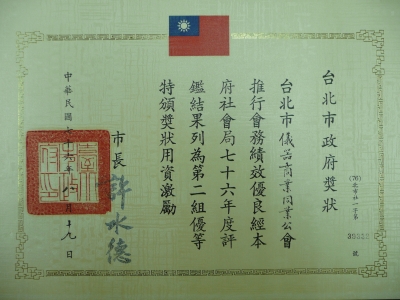 台北市政府獎狀
(76)北市社一字第
號
台北市儀器商業同業公會
推行會務績效優良經本
府社會局七十六年度評
鑑結果列為第二組優等
特頒獎狀用資激勵
市長 許水德
中華民國七十六年 月十九日